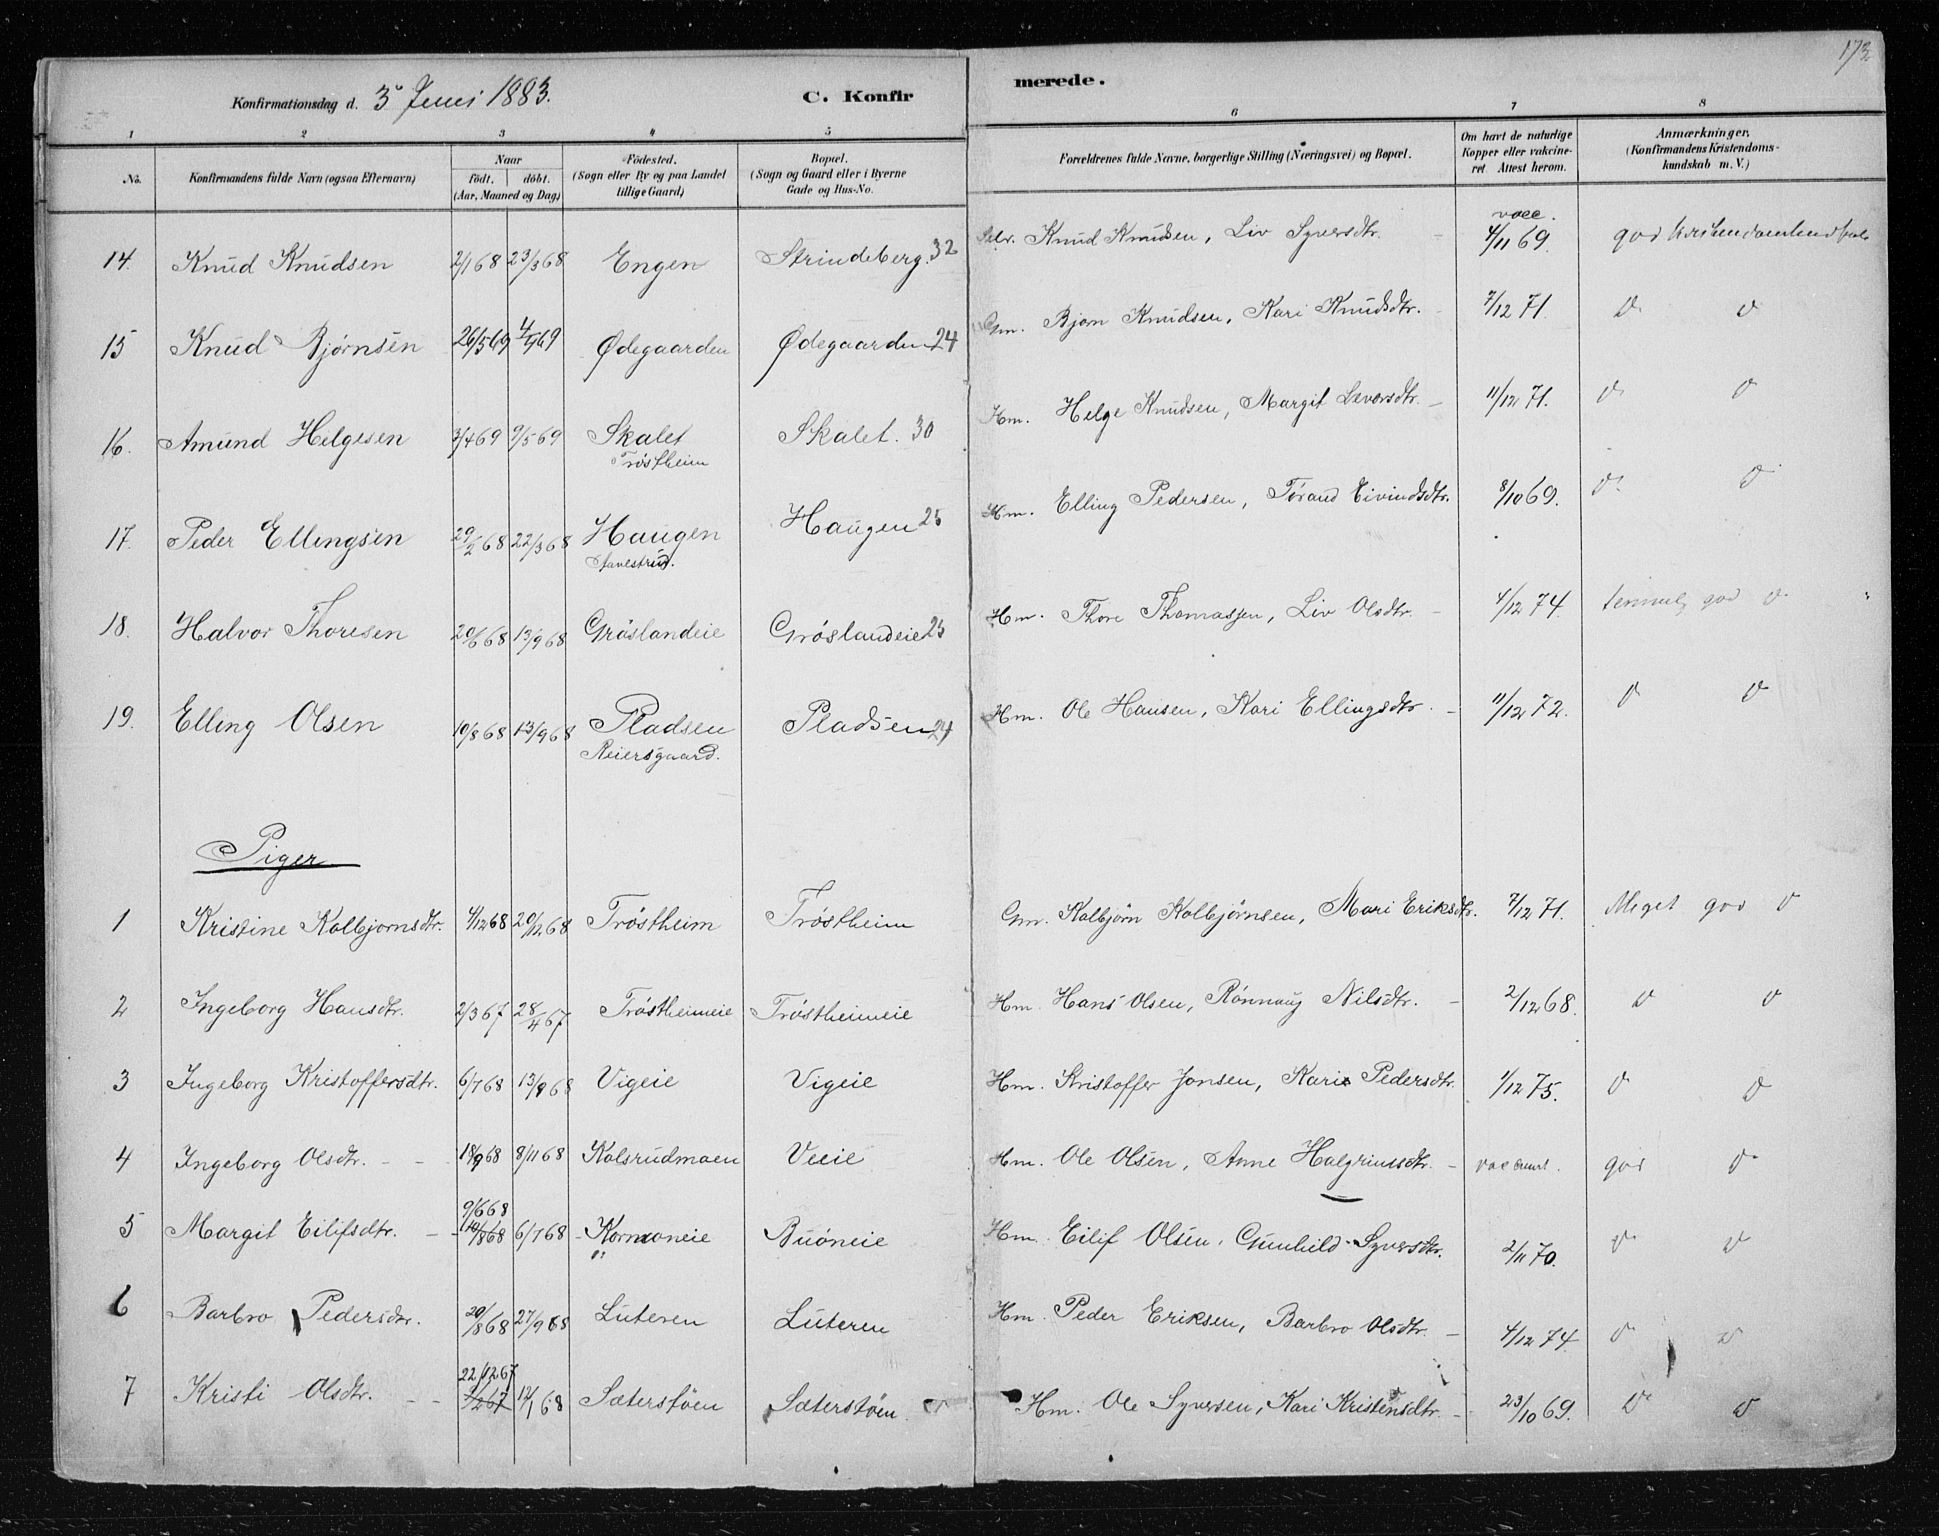 173
Konfirmationsdag d. 3' Juni 1883. C. Konfir merede.
1 2 3 4 5 6 7 8
No. Konfirmandens fulde Navn (ogsaa Efternavn) Naar födt. döbt. (Aar, Maaned og Dag) Födested. (Sogn eller By og paa Landet tillige Gaard) Bopæl. (Sogn og Gaard eller i Byerne Gade og Hus-No. Forældrenes fulde Navne, borgerlige Stilling (Næringsvei) og Bopæl. Om havt de naturlige Kopper eller vakcineret Attest herom. Anmærkninger. (Konfirmandens Kristendomskundskab m. V.)
14. Knud Knudsen 2/1 68 23/3 68 Engen Strindeberg. 32 Selv. Knud Knudsen, Liv Syversdtr. vacc. 4/11 69. god
15 Knud Bjørnsen 26/5 69 4/7 69 Ødegaarden Ødegaarden 24 Gm. Bjørn Knudsen, Kari Knudsdtr. 7/12 71. D D
16. Amund Helgesen 3/4 69 9/5 69 Skalet Trøstheim Skalet. 30 Hm. Helge Knudsen, Margit Leversdtr. 11/12 71. D D
17. Peder Ellingsen 29/2 68 22/3 68 Haugen Stavestrud. Haugen 25 Hm. Elling Pedersen, Tørand Eivindsdtr. 8/10 69. D D
18. Halvor Thoresen 20/6 68 13/9 68 Grøslandeie Grøslandeie 25 Hm. Thore Thomassen, Liv Olsdtr. 4/12 74. temmel. god D
19. Elling Olsen 10/8 68 13/9 68 Pladsen Reiersgaard. Pladsen 24 Hm. Ole Hansen, Kari Ellingsdtr. 11/12 72. D D
Piger
1 Kristine Kolbjørnsdtr. 4/12 68 20/12 68 Trøstheim Trøstheim Gm. Kolbjørn Kolbjørnsen, Mari Eriksdtr. 7/12 71. Meget god D
2 Ingeborg Hansdtr. 2/3 67 28/4 67 Trøstheimeie Trøstheimeie Hm. Hans Olsen, Rønnaug Nilsdtr. 2/12 68. D D
3 Ingeborg Kristoffersdtr. 6/7 68 13/9 68 Vigeie Vigeie Hm. Kristoffer Jonsen, Kari Pedersdtr. 1/12 75. D D
4 Ingeborg Olsdtr. 18/9 68 8/11 68 Kolsrudmoen Veeie Hm. Ole Olsen, Anne Halgrimsdtr. god D
5 Margit Eilifsdtr. 9/6 68 10/8 68 6/7 68 Buøneie Hm. Eilif Olsen, Gunhild Syversdtr. 2/11 70. D D
6 Barbro Pedersdtr. 20/8 68 27/9 68 Luteren Luteren Hm. Peder Eriksen, Barbro Olsdtr. 4/12 74 D D
7 Kristi Olsdtr. 22/12 67 12/1 68 Sæterstøen Sæterstøen Hm. Ole Syversen, Kari Kristensdtr. 23/10 69. D D